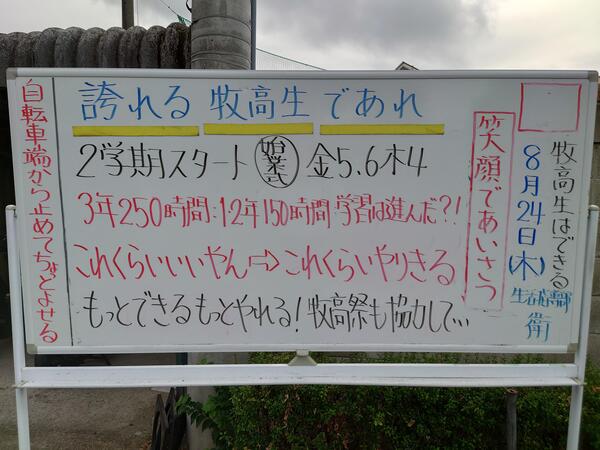 牧高生はできる
8月24日(木)
衛
笑顔であいさつ
誇れる 牧高生 であれ
2学期スタート 始業式 金5.6木4
3年250時間:12年150時間 学習は進んだ?!
これくらいいいやん⇨これくらいやりきる
もっとできるもっとやれる!牧高祭も協力して…
自転車端から止めてちょとよせる